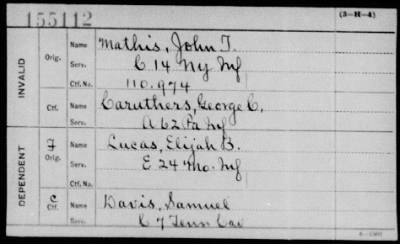 155112
(3-H-4)
INVALID
Orig.
Name Mathis, John T.
Serv. C 14 Ny Inf
Ctf. No. 110.974
Ctf.
Name Caruthers, George C.
Serv. A 62 Pa Inf
DEPENDENT
F
Orig.
Name Lucas, Elijah B.
Serv. E 24 Mo. Inf
Ctf. No.
C
Ctf.
Name Davis, Samuel
Serv. C 7 Tenn Cav